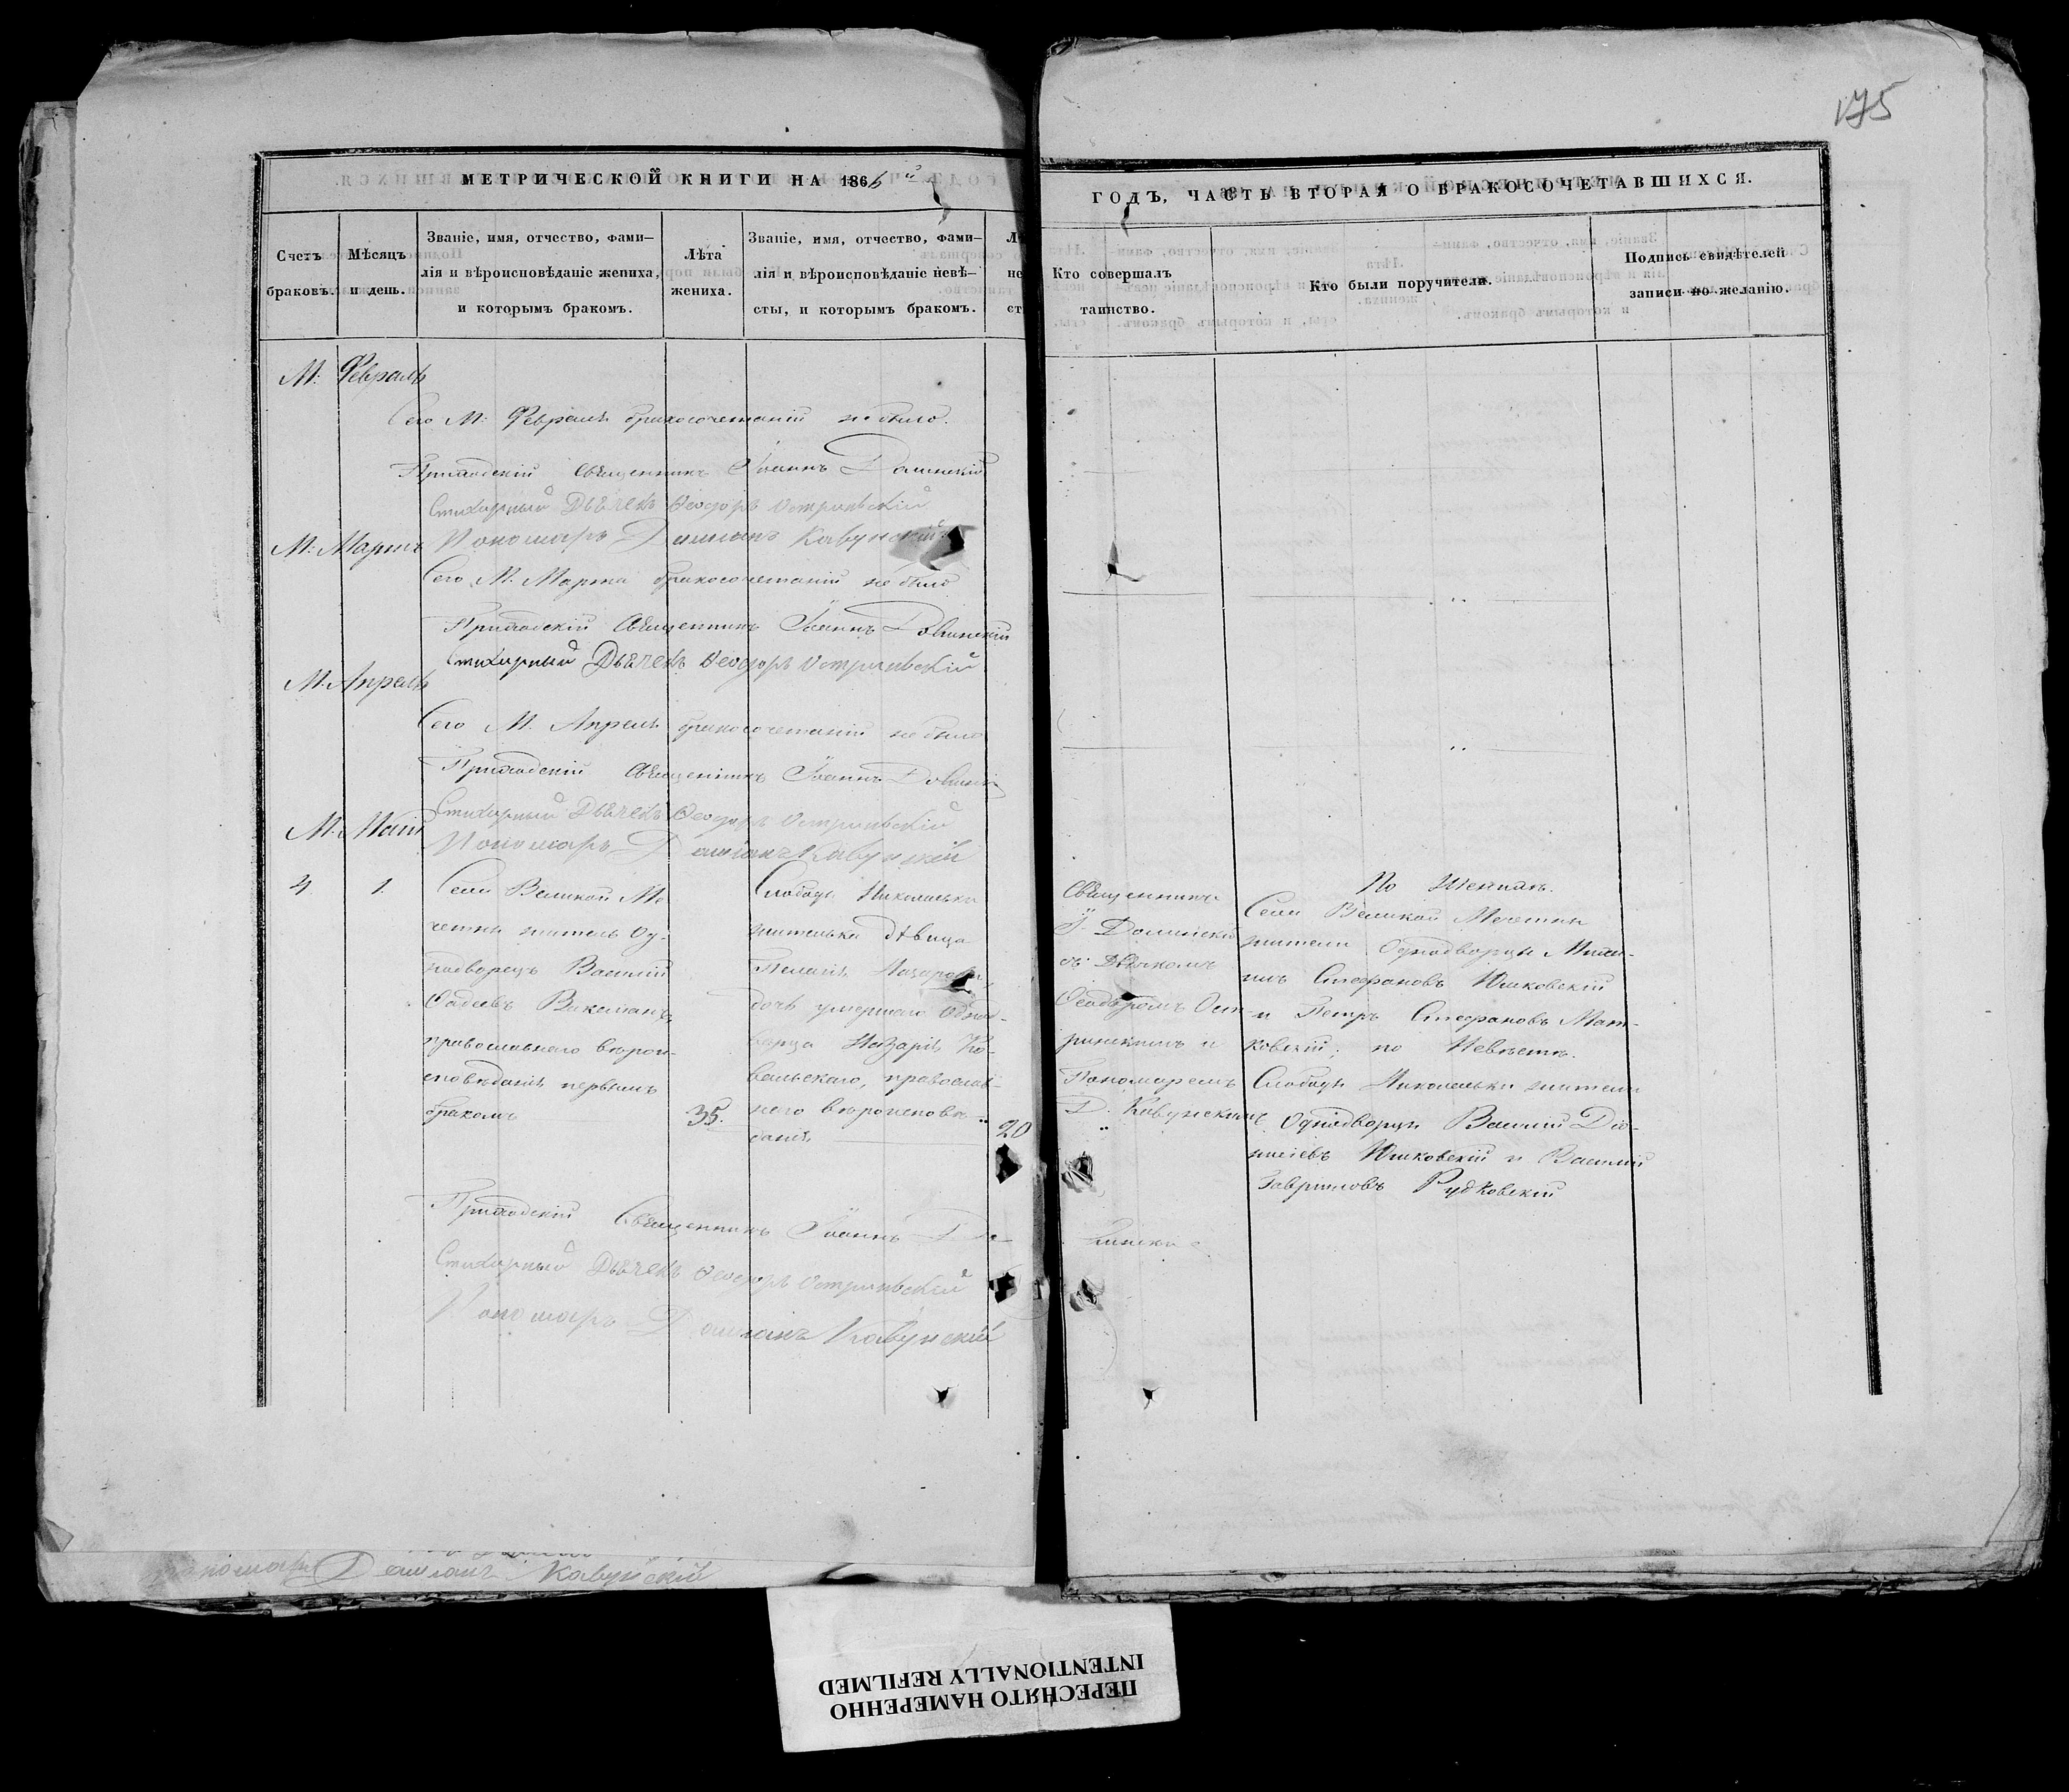 175
МЕТРИЧЕСКОЙ КНИГИ НА 1866й
ГОДЪ, ЧАСТЬ ВТОРАЯ О БРАКОСОЧЕТАВШИХСЯ.
Счетъ
браковъ.
Мѣсяцъ
и день.
Званіе, имя, отчество, фами-
лія и вѣроисповѣданіе жениха,
и которымъ бракомъ.
Лѣта
жениха.
Званіе, имя, отчество, фами-
лія и вѣроисповѣданіе невѣ-
сты, и которымъ бракомъ.
Кто совершалъ
таинство.
Кто были поручители.
Подпись свидѣтелей
записи по желанію.
М: Февраль
Сего М: Февраля бракосочетаній не было.
Приходскій Священникъ Іоаннъ Долинскій
Стихарный Дьячекъ Ѳеодоръ Остриевскій
М: Мартъ
Пономарь Даміанъ Кавунскій
Сего М. Марта бракосочетаній не было
Приходскій Священникъ Іоаннъ Долинскій
Стихарный Дьячекъ Ѳеодоръ Остриевскій
М. Апрель
Сего М. Апреля бракосочетаній не было
Приходскій Священникъ Іоаннъ Долинскій
Стихарный Дьячекъ Ѳеодоръ Остриевскій
М. Маій
Пономарь Даміанъ Кавунскій
4 1.
Села Великой Ме
четни житель Од-
нодворецъ Василій
Фадеевъ
православнаго вѣрои-
сповѣданія первымъ
бракомъ
35.
Слободы Николаевки
жителька дѣвица
Пелагія Назарова,
дочь умершаго Одно-
дворца Назарія Ко-
вальскаго, православ-
наго вѣроисповѣ-
данія
20
Священникъ
І. Долинскій
съ Дьячкомъ
Ѳеодоромъ Ост-
и
Пономаремъ
Д. Кавунскимъ
По Женихѣ.
Села Великой Мечетни
жители Однодворцы
Стефановъ
и Петръ Стефановъ
по Невѣстѣ.
Слободы Николаевки жители
Однодворцы Василій Діо-
нисіевъ и Василій
Гавриловъ Рудковскій
Приходскій Священникъ Іоаннъ До-
линскій
Стихарный Дьячекъ Ѳеодоръ Остриевскій
Пономарь Даміанъ Кавунскій
Пономарь Даміанъ Кавунскій
ПЕРЕСНЯТО НАМЕРЕННО
INTENTIONALLY REFILMED